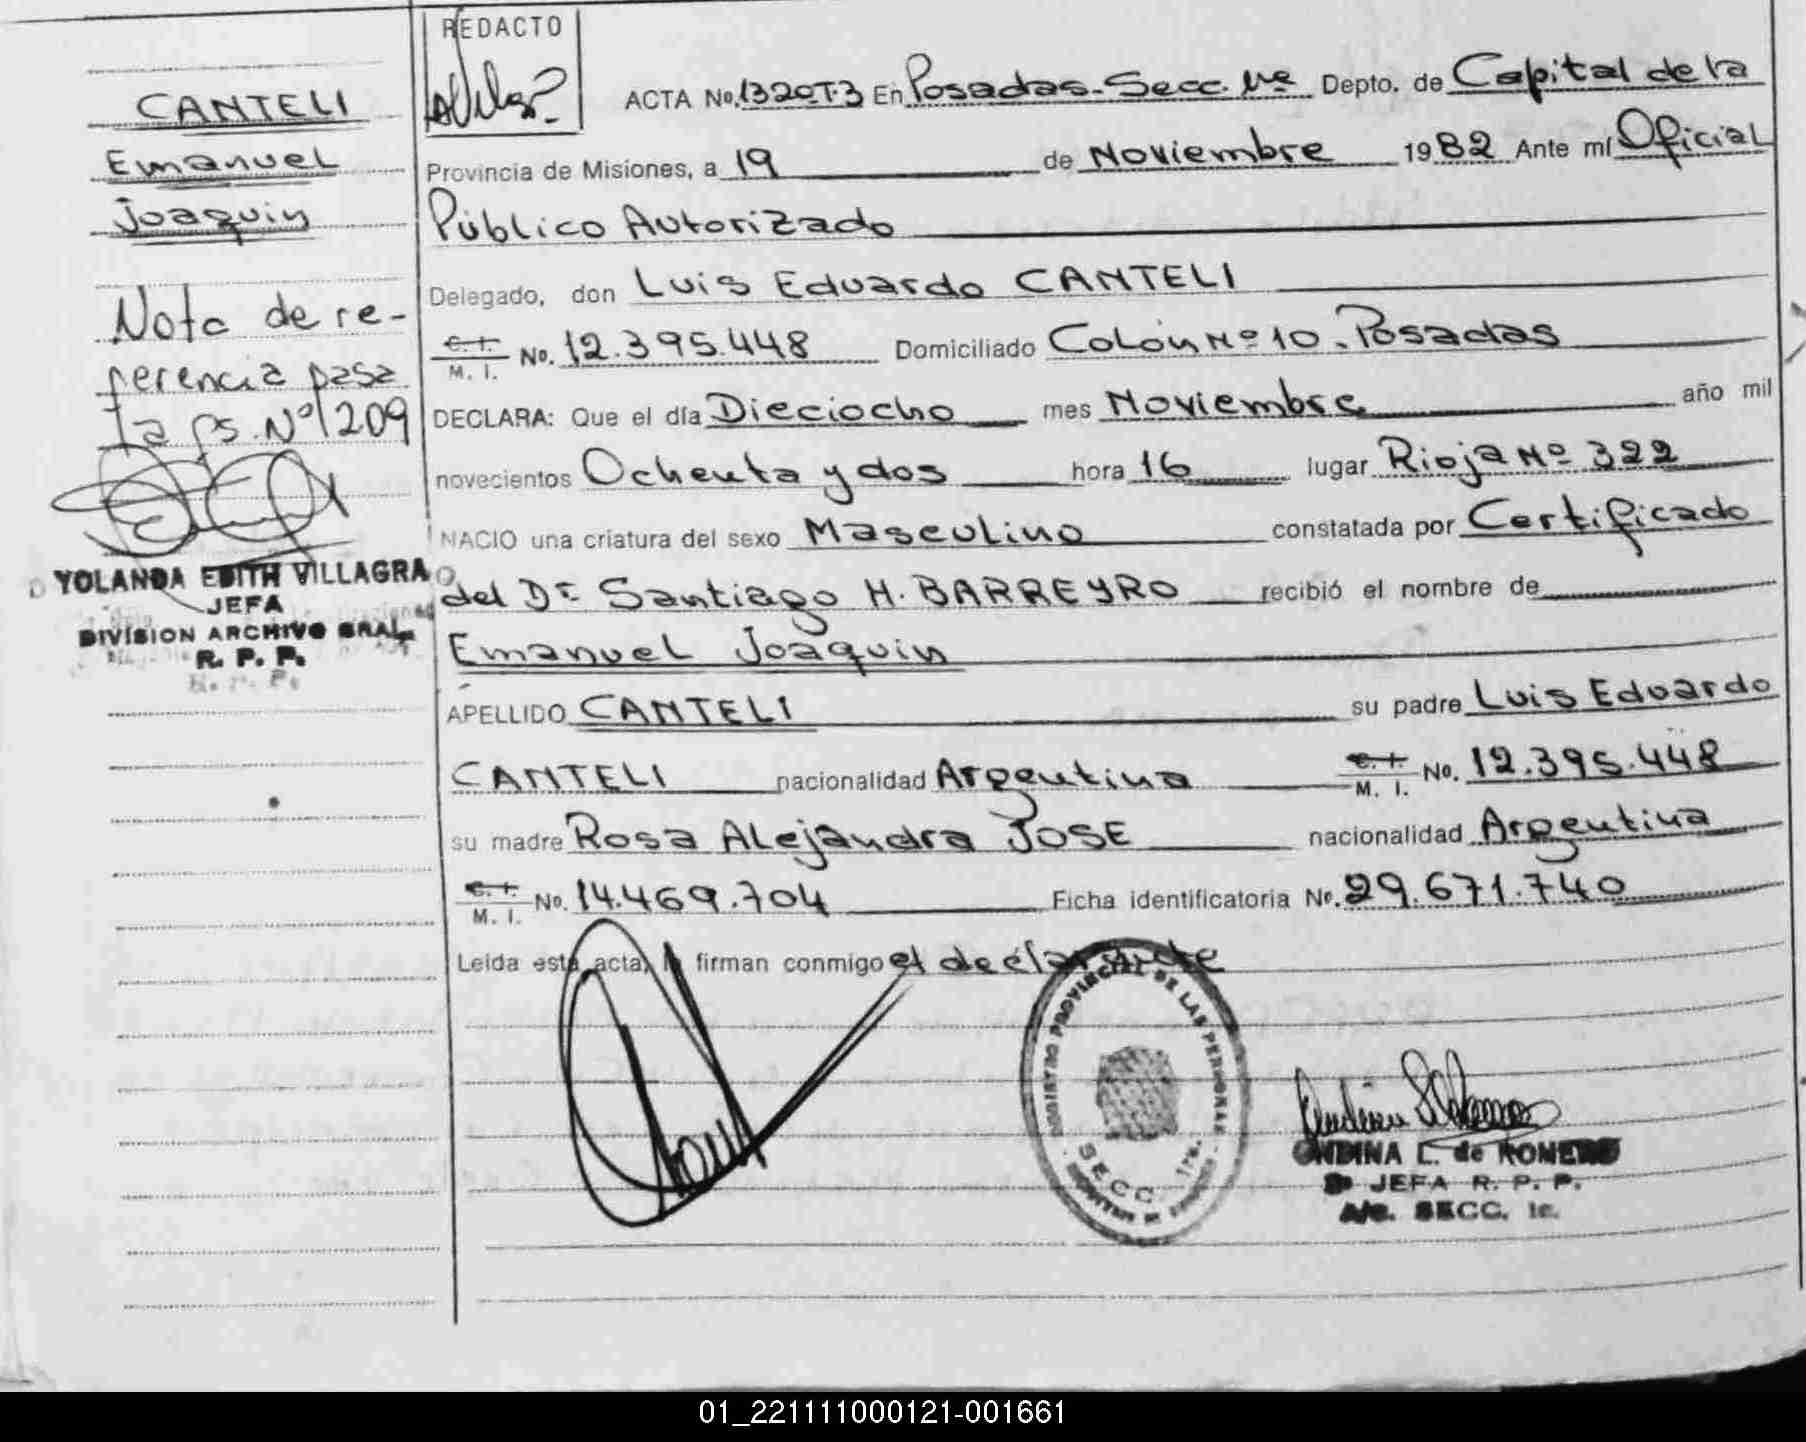 CANTELI
Emanuel
Joaquin
Nota de re-
ferencia pasa
la fs. Nº 1209
YOLANDA EDITH VILLAGRA
JEFA
DIVISION ARCHIVO GRAL.
R. P. P.
REDACTO
ACTA No. 1320T3 En Posadas-Secc. 1ra Depto. de Capital de la
Provincia de Misiones, a 19 de Noviembre 1982 Ante mí Oficial
Público Autorizado
Delegado, don Luis Eduardo CANTELI
C. I. M. I. No. 12.395.448 Domiciliado Colón Nº 10 - Posadas
DECLARA: Que el día Dieciocho mes Noviembre año mil
novecientos Ochenta y dos hora 16 lugar Rioja Nº 322
NACIO una criatura del sexo Masculino constatada por Certificado
del Dr. Santiago H. BARREYRO recibió el nombre de
Emanuel Joaquin
APELLIDO CANTELI su padre Luis Eduardo
CANTELI nacionalidad Argentina C. I. M. I. No. 12.395.448
su madre Rosa Alejandra JOSE nacionalidad Argentina
C. I. M. I. No. 14.469.704 Ficha identificatoria No. 29.671.740
Leída esta acta, la firman conmigo el declarante
REGISTRO PROVINCIAL DE LAS PERSONAS
SECC. 1ra.
ONDINA L. de ROMERO
JEFA R. P. P.
A/c. SECC. 1a.
01_221111000121-001661